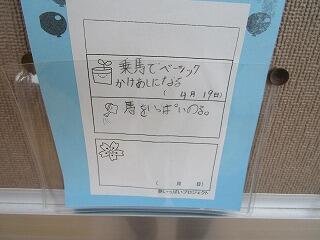 乗馬でベーシック
かけあしになる
( 4月19日)
馬をいっぱいのる。
( 月 日)
夢いっぱいプロジェクト